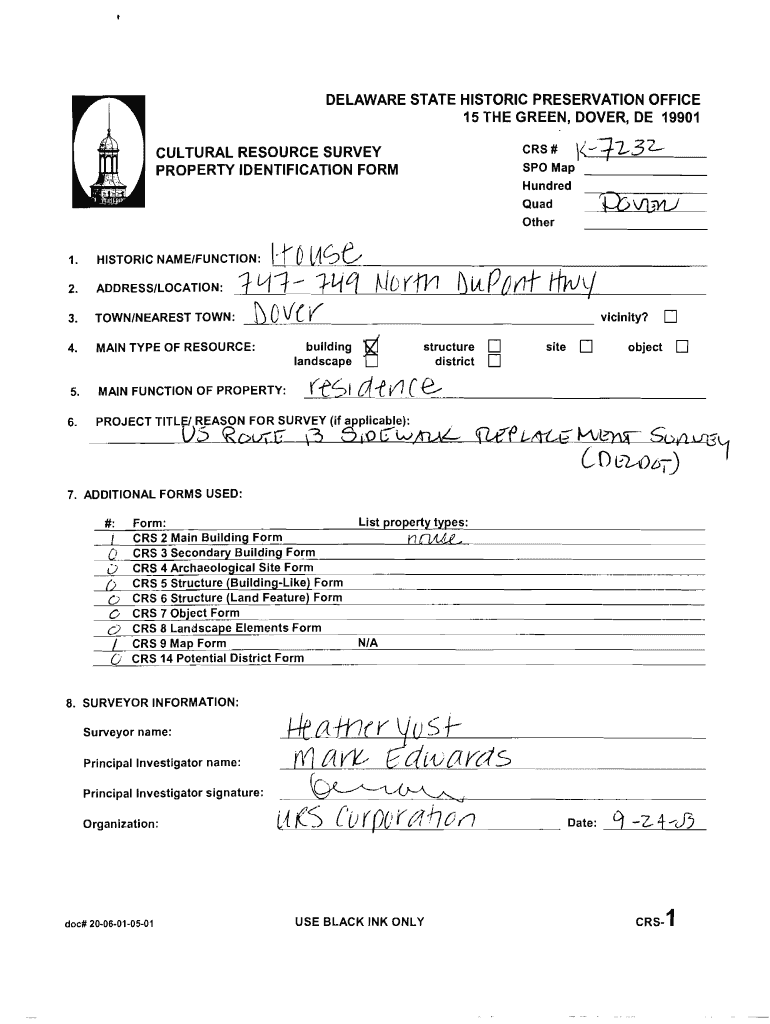 DELAWARE STATE HISTORIC PRESERVATION OFFICE
15 THE GREEN, DOVER, DE 19901
CULTURAL RESOURCE SURVEY
PROPERTY IDENTIFICATION FORM
CRS # K-7232
SPO Map
Hundred
Quad Dover
Other
1. HISTORIC NAME/FUNCTION: House
2. ADDRESS/LOCATION: 747-749 North DuPont Hwy
3. TOWN/NEAREST TOWN: Dover vicinity?
4. MAIN TYPE OF RESOURCE: building structure site object
landscape district
5. MAIN FUNCTION OF PROPERTY: residence
6. PROJECT TITLE/ REASON FOR SURVEY (if applicable):
US ROUTE 13 SIDEWALK REPLACEMENT SURVEY
(DELDOT)
7. ADDITIONAL FORMS USED:
#: Form: List property types:
1 CRS 2 Main Building Form house
0 CRS 3 Secondary Building Form
0 CRS 4 Archaeological Site Form
0 CRS 5 Structure (Building-Like) Form
0 CRS 6 Structure (Land Feature) Form
0 CRS 7 Object Form
0 CRS 8 Landscape Elements Form
1 CRS 9 Map Form N/A
0 CRS 14 Potential District Form
8. SURVEYOR INFORMATION:
Surveyor name: Heather Yost
Principal Investigator name: Mark Edwards
Principal Investigator signature:
Organization: URS Corporation Date: 9-24-03
doc# 20-06-01-05-01 USE BLACK INK ONLY CRS-1